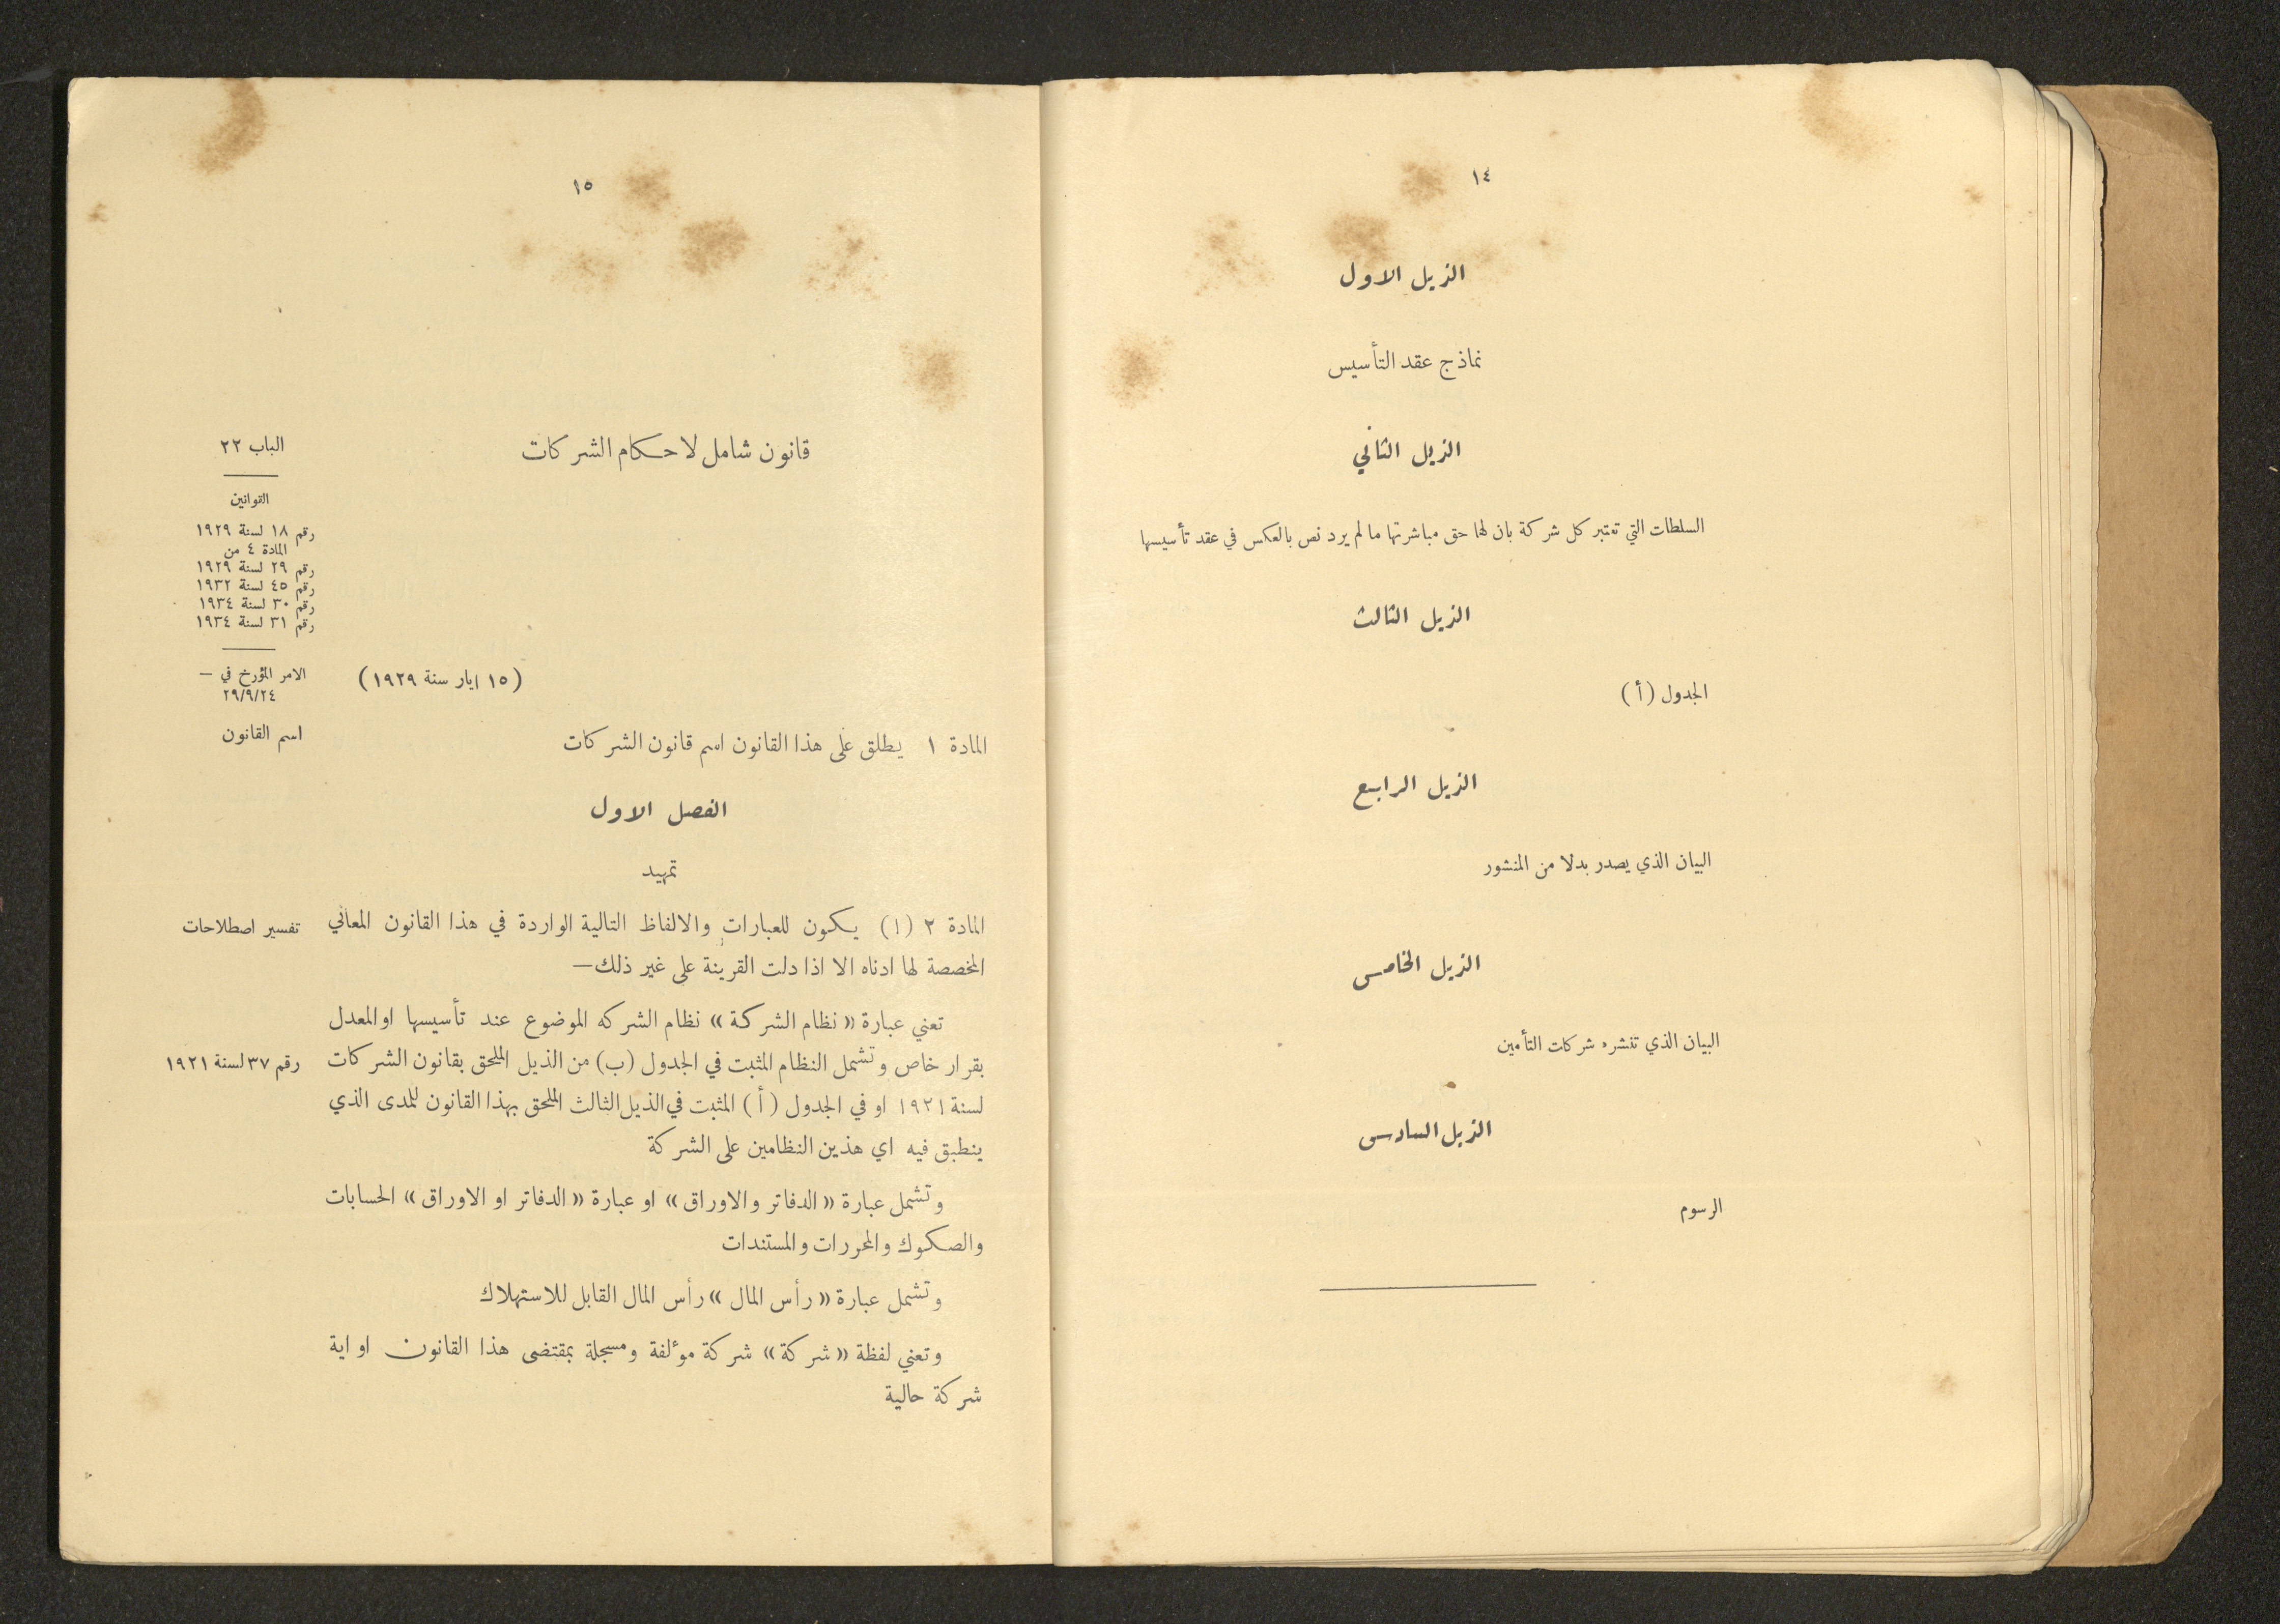 ١٤
الذيل الاول
نماذج عقد التأسيس
الذيل الثاني
السلطات التي تعتبر كل شركة بان لها حق مباشرتها ما لم يرد نص بالعكس في عقد تأسيسها
الذيل الثالث
الجدول (أ)
الذيل الرابع
البيان الذي يصدر بدلا من المنشور
الذيل الخامس
البيان الذي تنشره شركات التأمين
الذيل السادس
الرسوم
١٥
قانون شامل لاحكام الشركات
الباب ٢٢
القوانين
رقم ١٨ لسنة ١٩٢٩
المادة ٤ من
رقم ٢٩ لسنة ١٩٢٩
رقم ٤٥ لسنة ١٩٣٢
رقم ٣٠ لسنة ١٩٣٤
رقم ٣١ لسنة ١٩٣٤
الامر المؤرخ في —
٢٩/٩/٢٤
(١٥ ايار سنة ١٩٢٩)
اسم القانون
المادة ١ يطلق على هذا القانون اسم قانون الشركات
الفصل الاول
تمهيد
المادة ٢ (١) يكون للعبارات والالفاظ التالية الواردة في هذا القانون المعاني
تفسير اصطلاحات
المخصصة لها ادناه الا اذا دلت القرينة على غير ذلك—
تعني عبارة «نظام الشركة» نظام الشركه الموضوع عند تأسيسها او المعدل
بقرار خاص وتشمل النظام المثبت في الجدول (ب) من الذيل الملحق بقانون الشركات
رقم ٣٧ لسنة ١٩٢١
لسنة ١٩٢١ او في الجدول (أ) المثبت في الذيل الثالث الملحق بهذا القانون للمدى الذي
ينطبق فيه اي هذين النظامين على الشركة
وتشمل عبارة «الدفاتر والاوراق» او عبارة «الدفاتر او الاوراق» الحسابات
والصكوك والمحررات والمستندات
وتشمل عبارة «رأس المال» رأس المال القابل للاستهلاك
وتعني لفظة «شركة» شركة مؤلفة ومسجلة بمقتضى هذا القانون او اية
شركة حالية